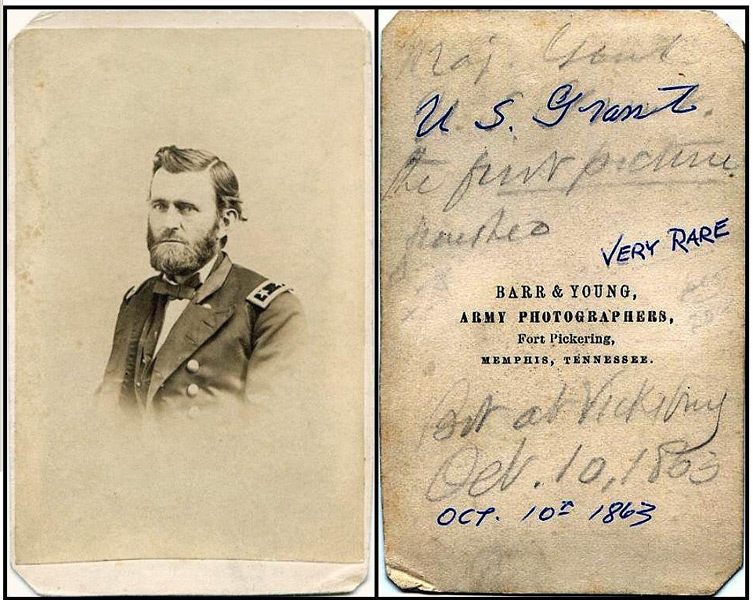 Maj. Grant
U. S. Grant.
the first picture
finished
VERY RARE
BARR & YOUNG,
ARMY PHOTOGRAPHERS,
Fort Pickering,
MEMPHIS, TENNESSEE.
at Vicksburg
Oct. 10, 1863
OCT. 10th 1863